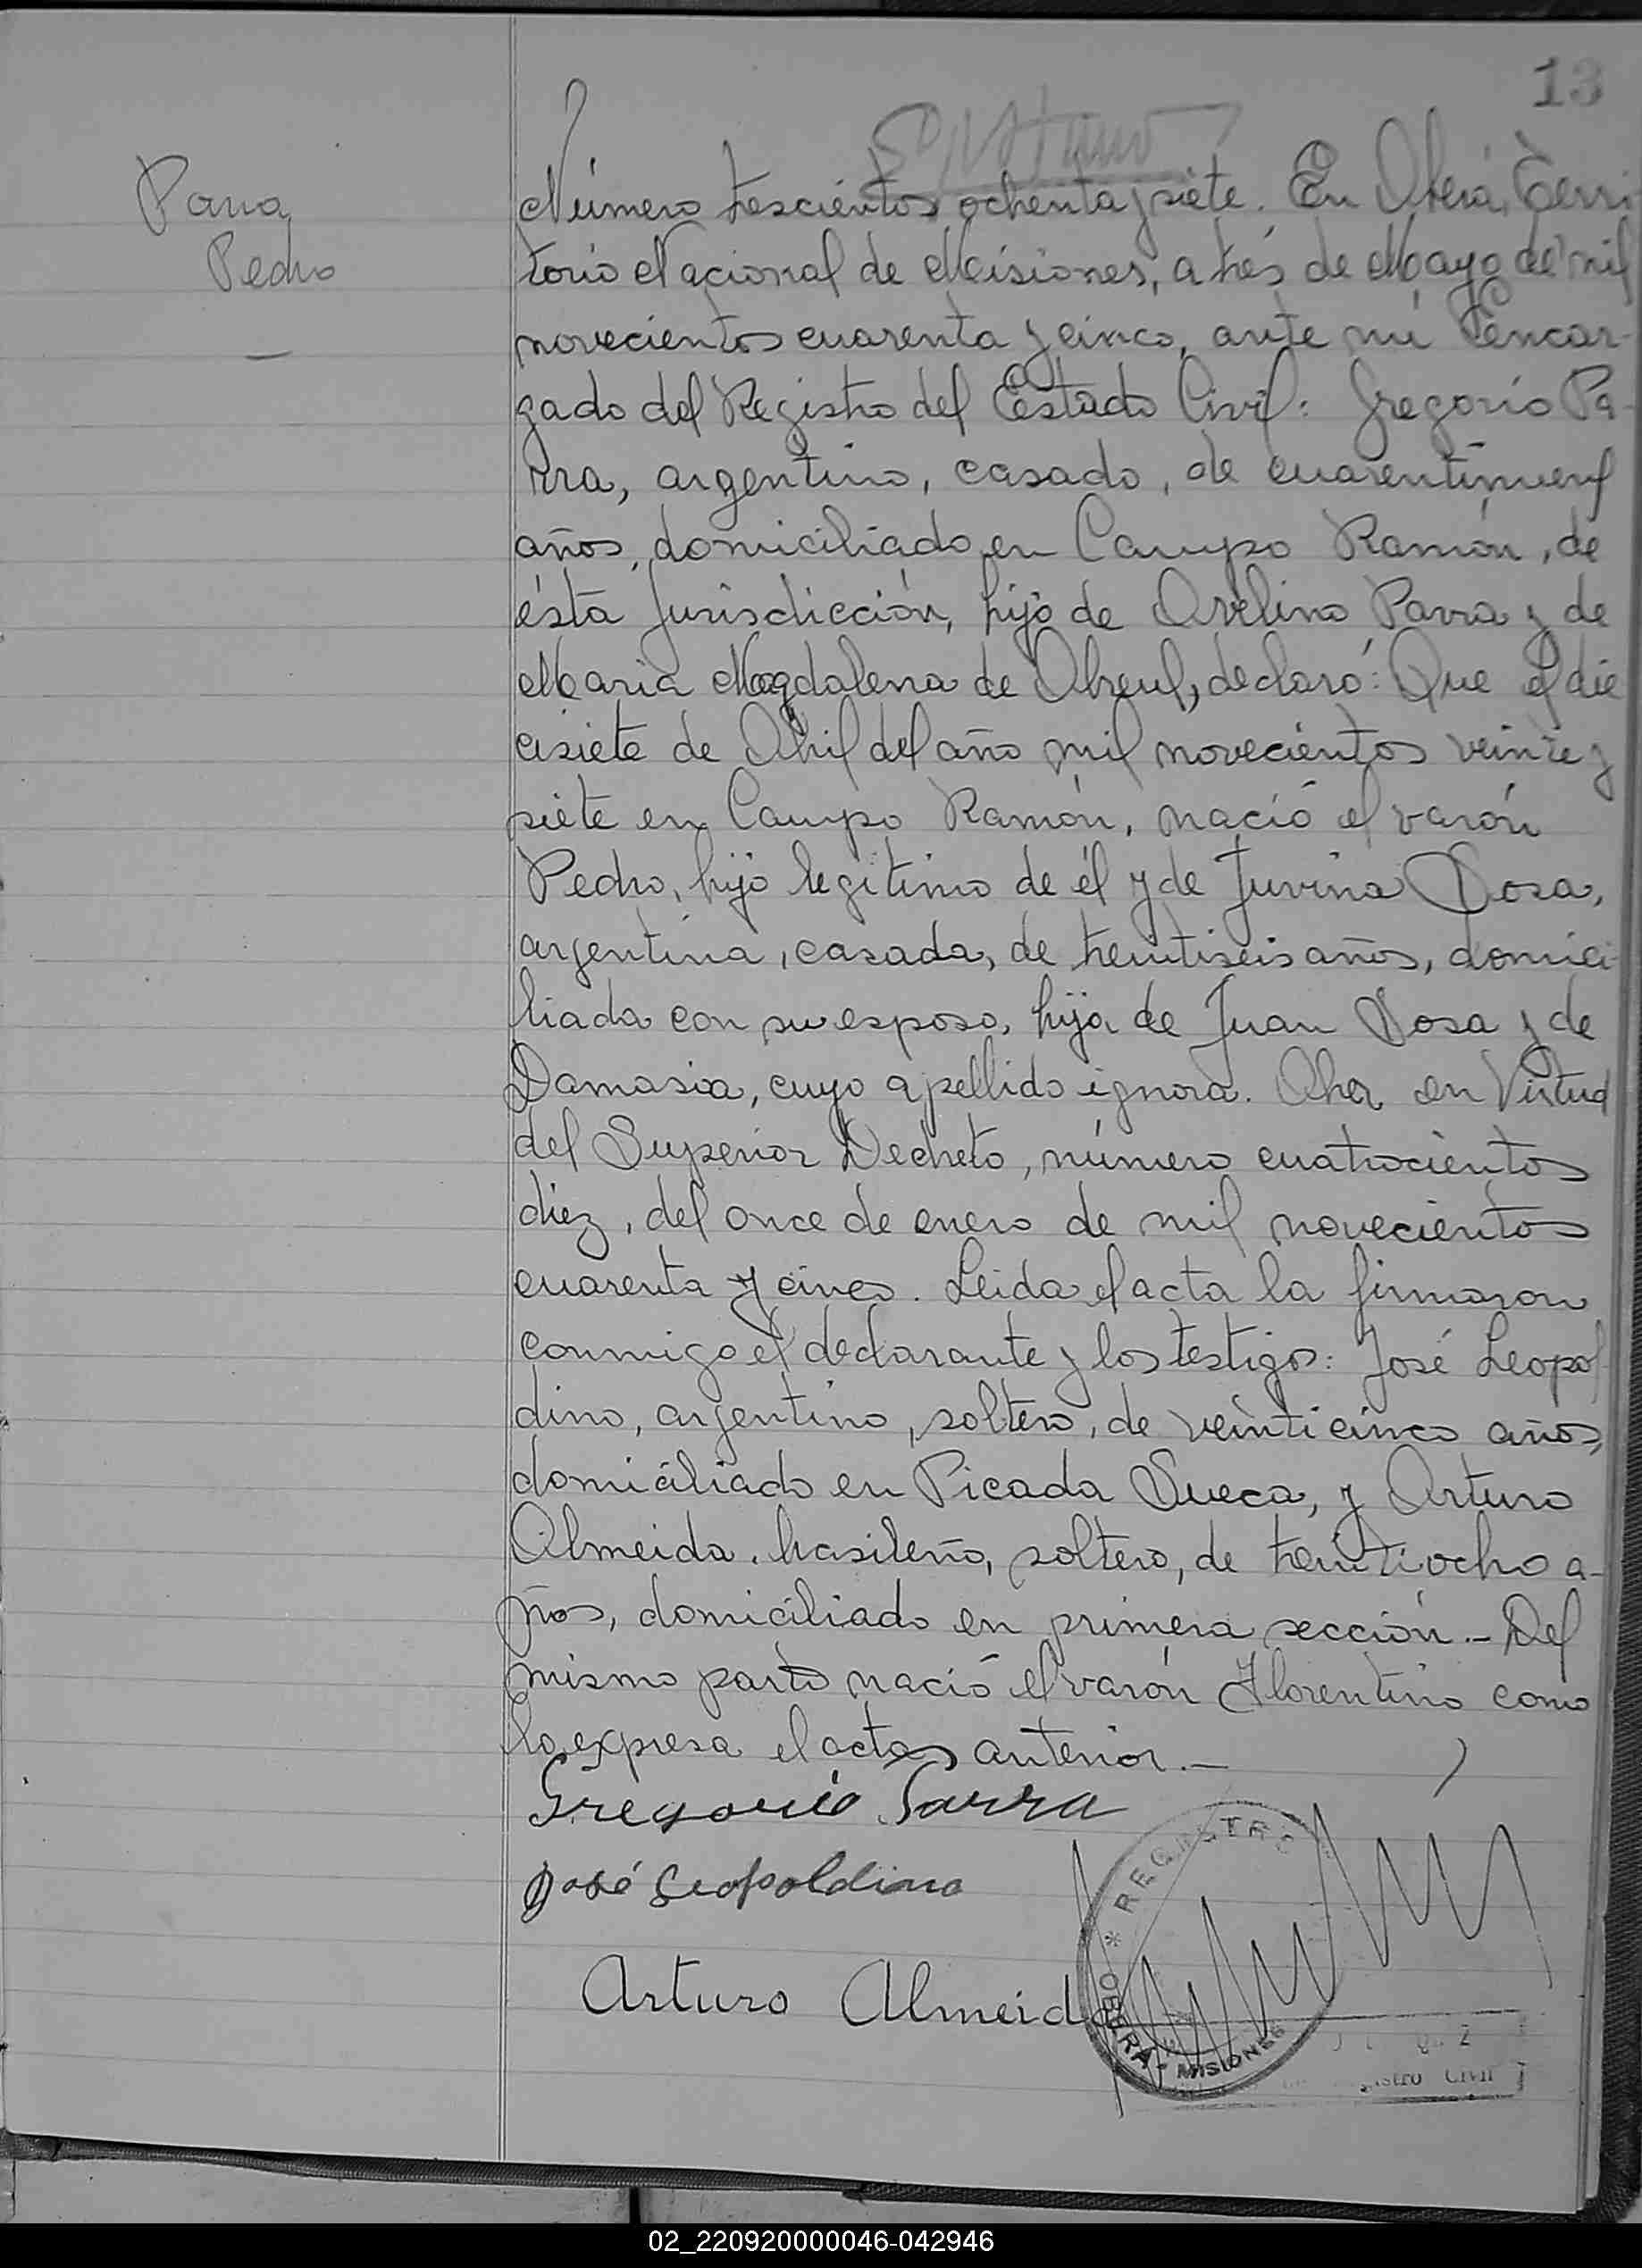 13
Parra
Pedro
Número trescientos ochenta y siete. En Oberá, Terri
torio Nacional de Misiones, a trés de Mayo de mil
novecientos cuarenta y cinco, ante mí Encar-
gado del Registro del Estado Civil: Gregorio Pa-
rra, argentino, casado, de cuarentinueve
años, domiciliado en Campo Ramón, de
ésta Jurisdicción, hijo de Avelino Parra y de
Maria Magdalena de Abreul, declaró: Que el die
cisiete de Abril del año mil novecientos veinte y
siete en Campo Ramón, nació el varón
Pedro, hijo legitimo de él y de Juvina Dosa,
argentina, casada, de treintiseis años, domici-
liada con su esposo, hija de Juan Dosa y de
Damasia, cuyo apellido ignora. en Virtud
del Superior Decreto, número cuatrocientos
diez, del once de enero de mil novecientos
cuarenta y cinco. Leida el acta la firmaron
conmigo el declarante y los testigos: José Leopol
dino, argentino, soltero, de veinticinco años,
domiciliado en Picada Sueca, y Arturo
Almeida, brasileño, soltero, de treintiocho a-
ños, domiciliado en primera sección.- Del
mismo parto nació el varón Florentino como
lo expresa el acta anterior.-
Gregorio Parra
José Leopoldino
Arturo Almeida
* REGISTRO
OBERÁ - MISIONES
istro Civil
02_220920000046-042946